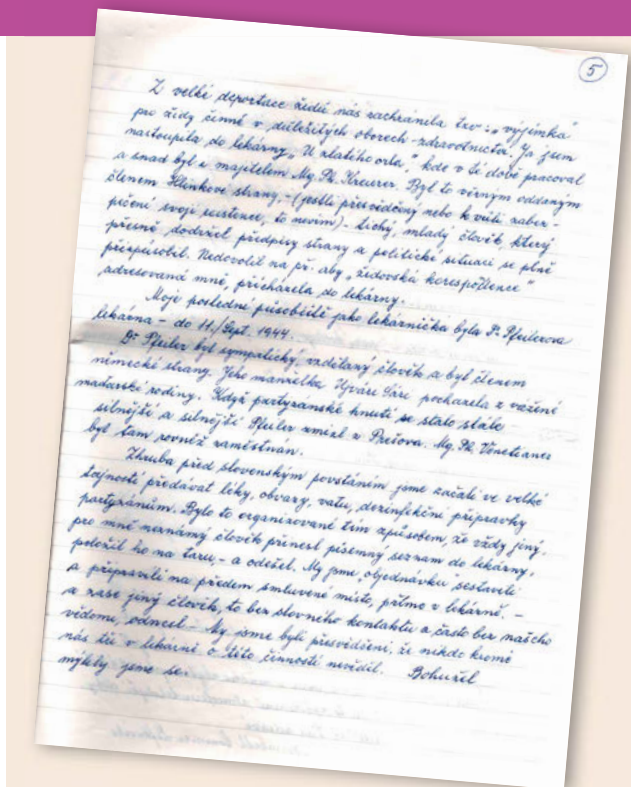 5
Z velké deportace židů nás zachránila tzv: „výjimka"
pro židy činné v důležitých oborech - zdravotnictví. Já jsem
nastoupila do lékárny „U zlatého orla", kde v té době pracoval
a snad byl i majitelem Mg. Ph. Kreuzer. Byl to věrným oddaným
členem Hlinkove strany, - (jestli přesvědčený nebo k vůli zabez-
pečení svojí existence, to nevím) - tichý, mladý člověk, který
přesně dodržel předpisy strany a politické situaci se plně
přizpůsobil. Nedovolil na př. aby „židovská korespondence"
adresovaná mně, přicházela do lékárny.
Moje poslední působiště jako lékárnička byla Dr Pfeilerova
lékárna - do 11./Sept. 1944.
Dr Pfeiler byl sympatický, vzdělaný člověk a byl členem
německé strany. Jeho manželka Ujvári Sári pocházela z vážené
maďarské rodiny. Když partyzánské hnutí se stalo stále
silnější a silnější Pfeiler zmizel z Prešova. Mg. Ph. Venetianer
byl tam rovněž zaměstnán.
Zhruba před slovenským povstáním jsme začali ve velké
tajnosti předávat léky, obvazy, vatu, dezinfekční přípravky
partyzánům. Bylo to organizované tím způsobem, že vždy jiný,
pro mně neznámý člověk přinesl písemný seznam do lékárny,
položil ho na taru, - a odešel. My jsme „objednavku" sestavili
a připravili na předem smluvené místo, přímo v lékárně, -
a zase jiný člověk, to bez slovního kontaktu a často bez našeho
vědomí, odnesl - My jsme byli přesvědčeni, že nikdo kromě
nás též v lékárně o této činnosti nevěděl. Bohužel
mýlily jsme se.